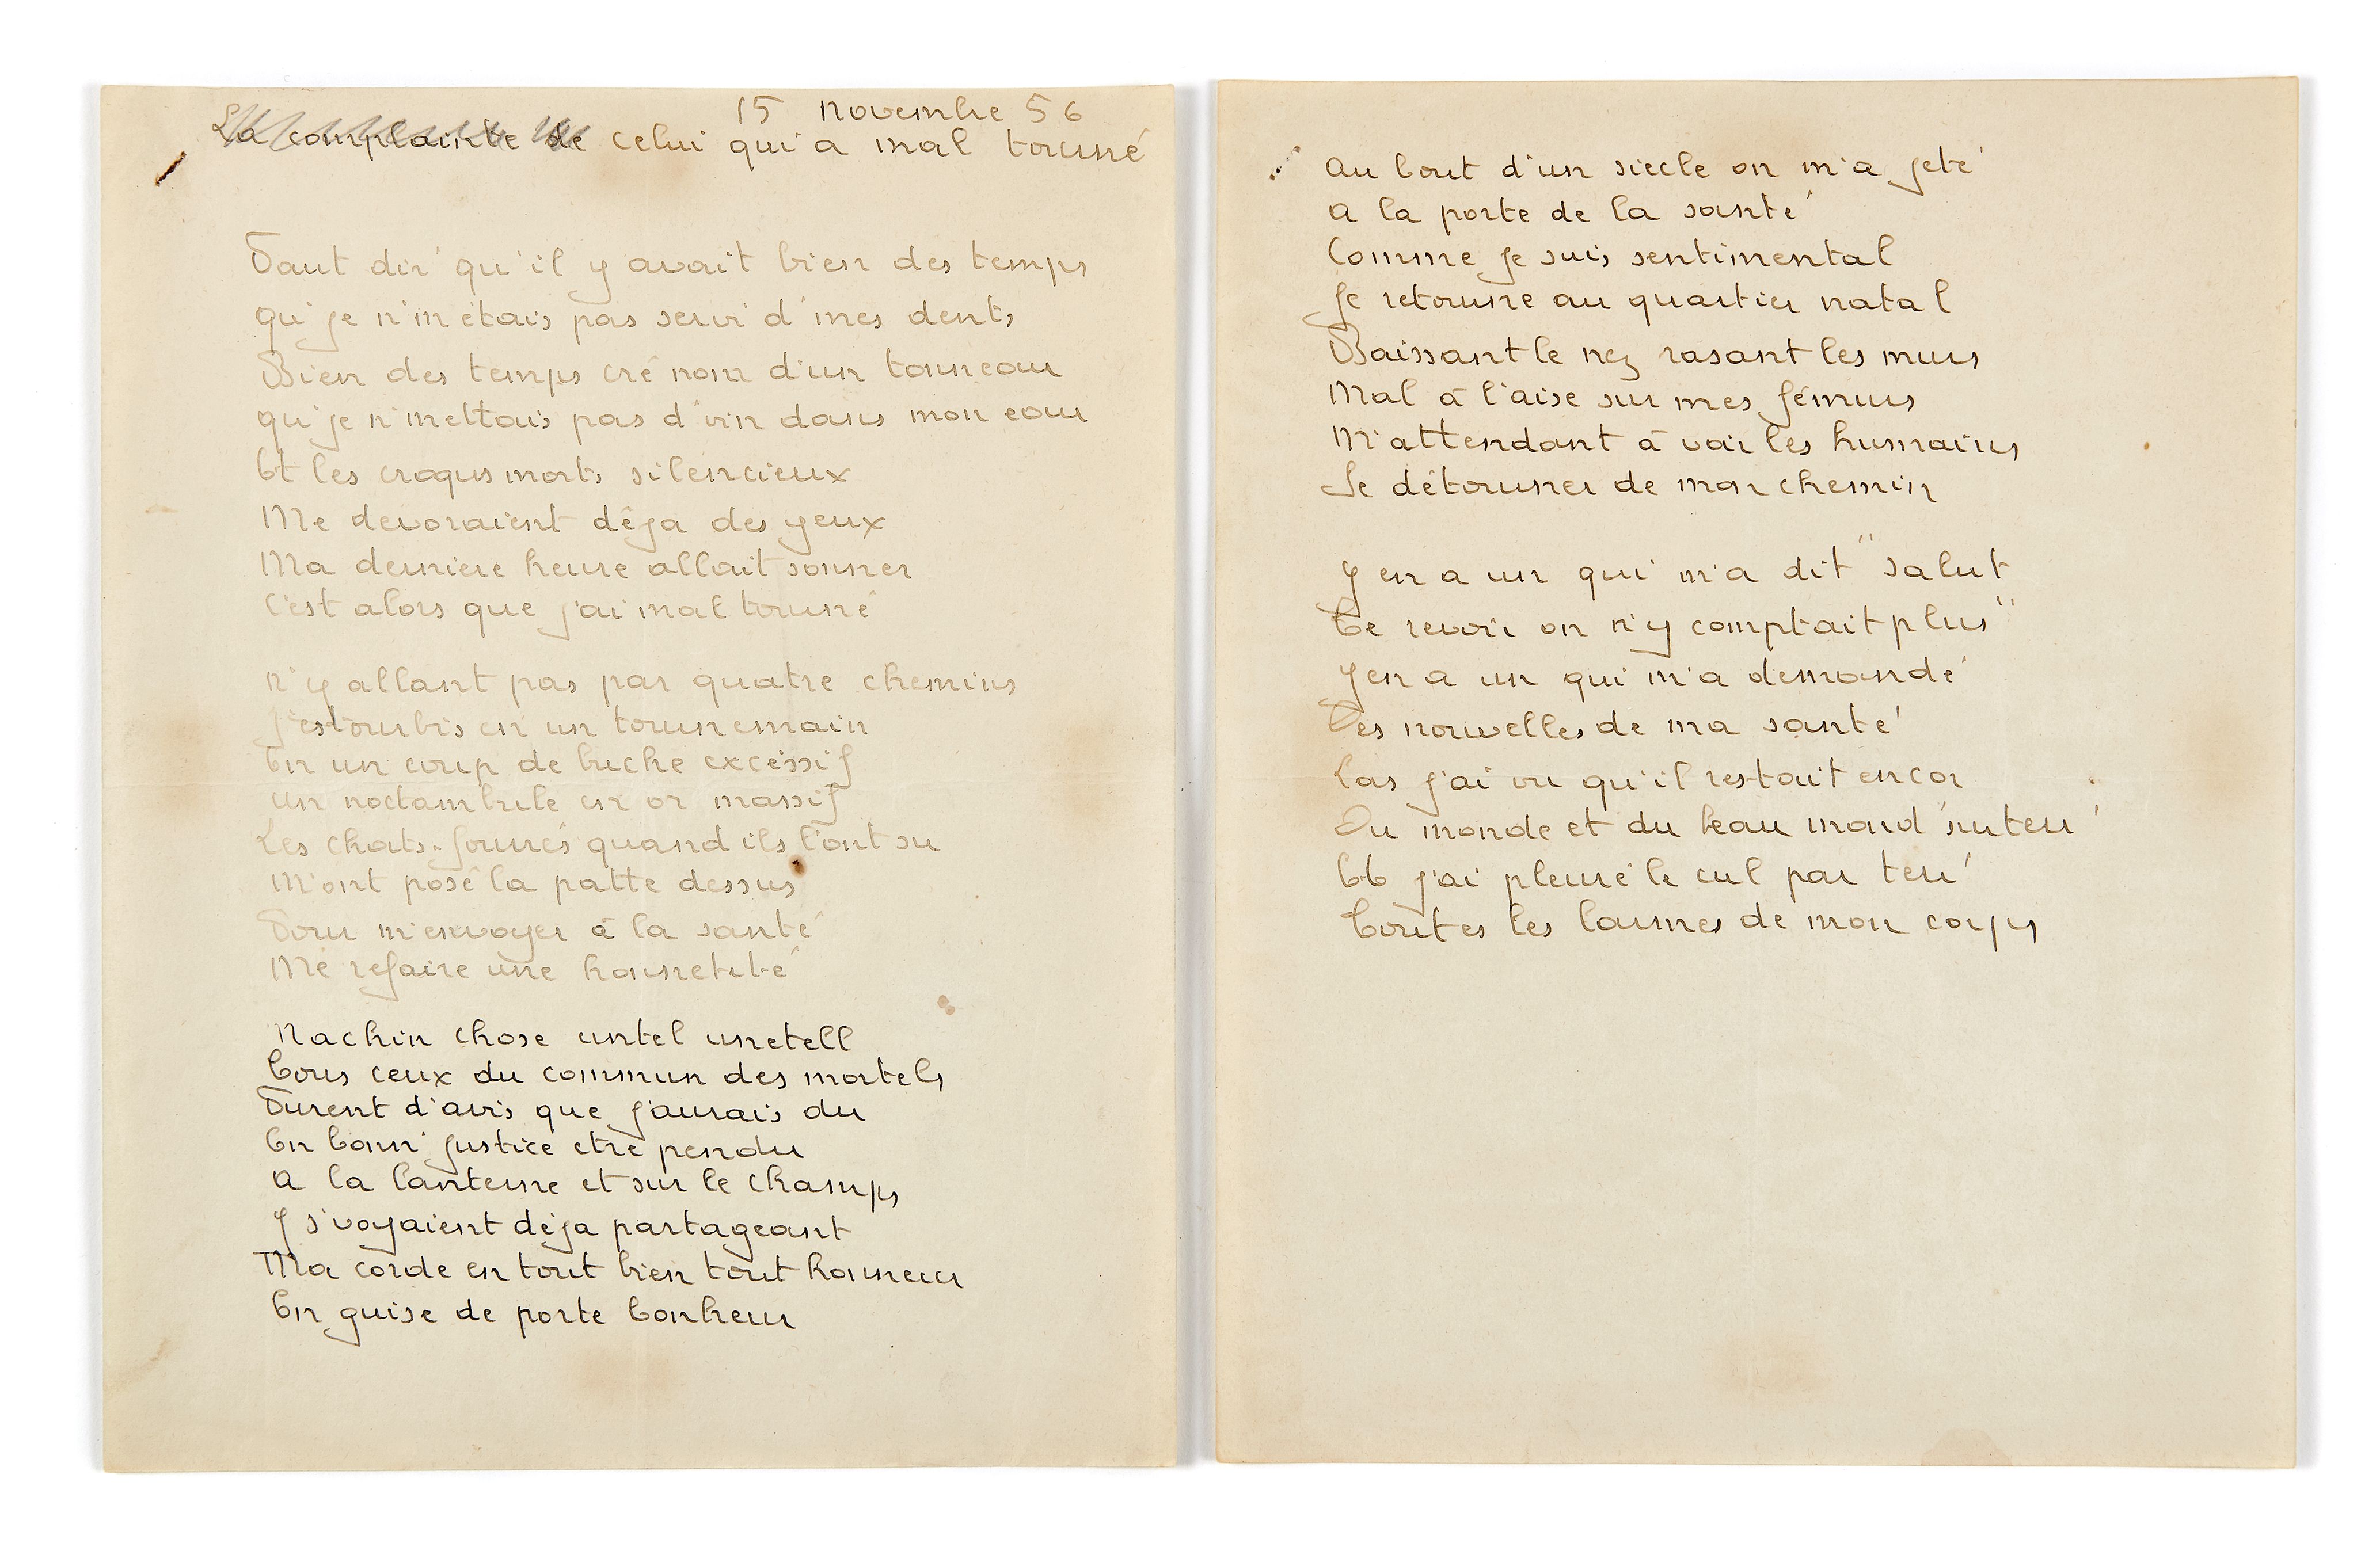 15 novembre 56
La complainte de celui qui a mal tourné
Faut dir' qu'il y avait bien des temps
qu'je n'm'étais pas servi d'mes dents
Bien des temps cré nom d'un tonneau
qu'je n'mettais pas d'vin dans mon eau
Et les croqus morts silencieux
Me devoraient déja des yeux
Ma derniere heure allait sonner
C'est alors que j'ai mal tourné
n'y allant pas par quatre chemins
J'estourbis en un tournemain
En un coup de buche excéssif
un noctambule en or massif
Les chats-fourrés quand ils l'ont su
M'ont posé la patte dessus
Pour m'envoyer à la santé
Me refaire une honnetete
Machin chose untel unetell
Tous ceux du commun des mortels
Furent d'avis que j'aurais du
En bonn' justice etre pendu
a la lanterne et sur le champs
Y s'voyaient déja partageant
Ma corde en tout bien tout honneur
En guise de porte bonheur
au bout d'un siecle on m'a jeté
a la porte de la santé
Comme je suis sentimental
Je retourne au quartier natal
Baissant le nez rasant les murs
Mal à l'aise sur mes fémurs
M'attendant à voir les humains
Se détourner de mon chemin
Y en a un qui m'a dit "salut
Te revoir on n'y comptait plus"
Y en a un qui m'a demandé
Des nouvelles de ma santé
Las j'ai vu qu'il restait encor
Du monde et du beau mond' sur terr'
Et j'ai pleuré le cul par terr'
Toutes les larmes de mon corps